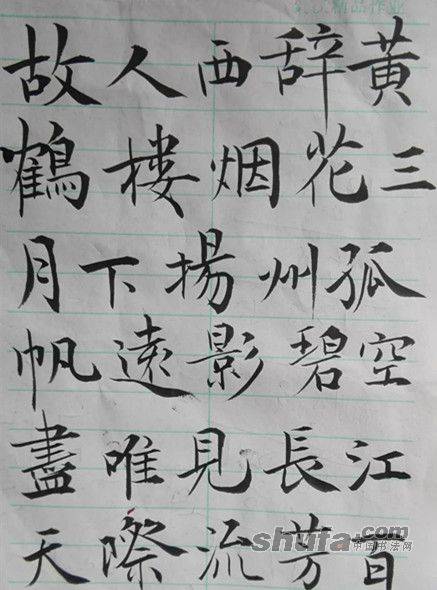 精品作业
故人西辞黄
鶴楼烟花三
月下揚州孤
帆遠影碧空
盡唯見長江
天際流芳首
shufa.com
中国书法网